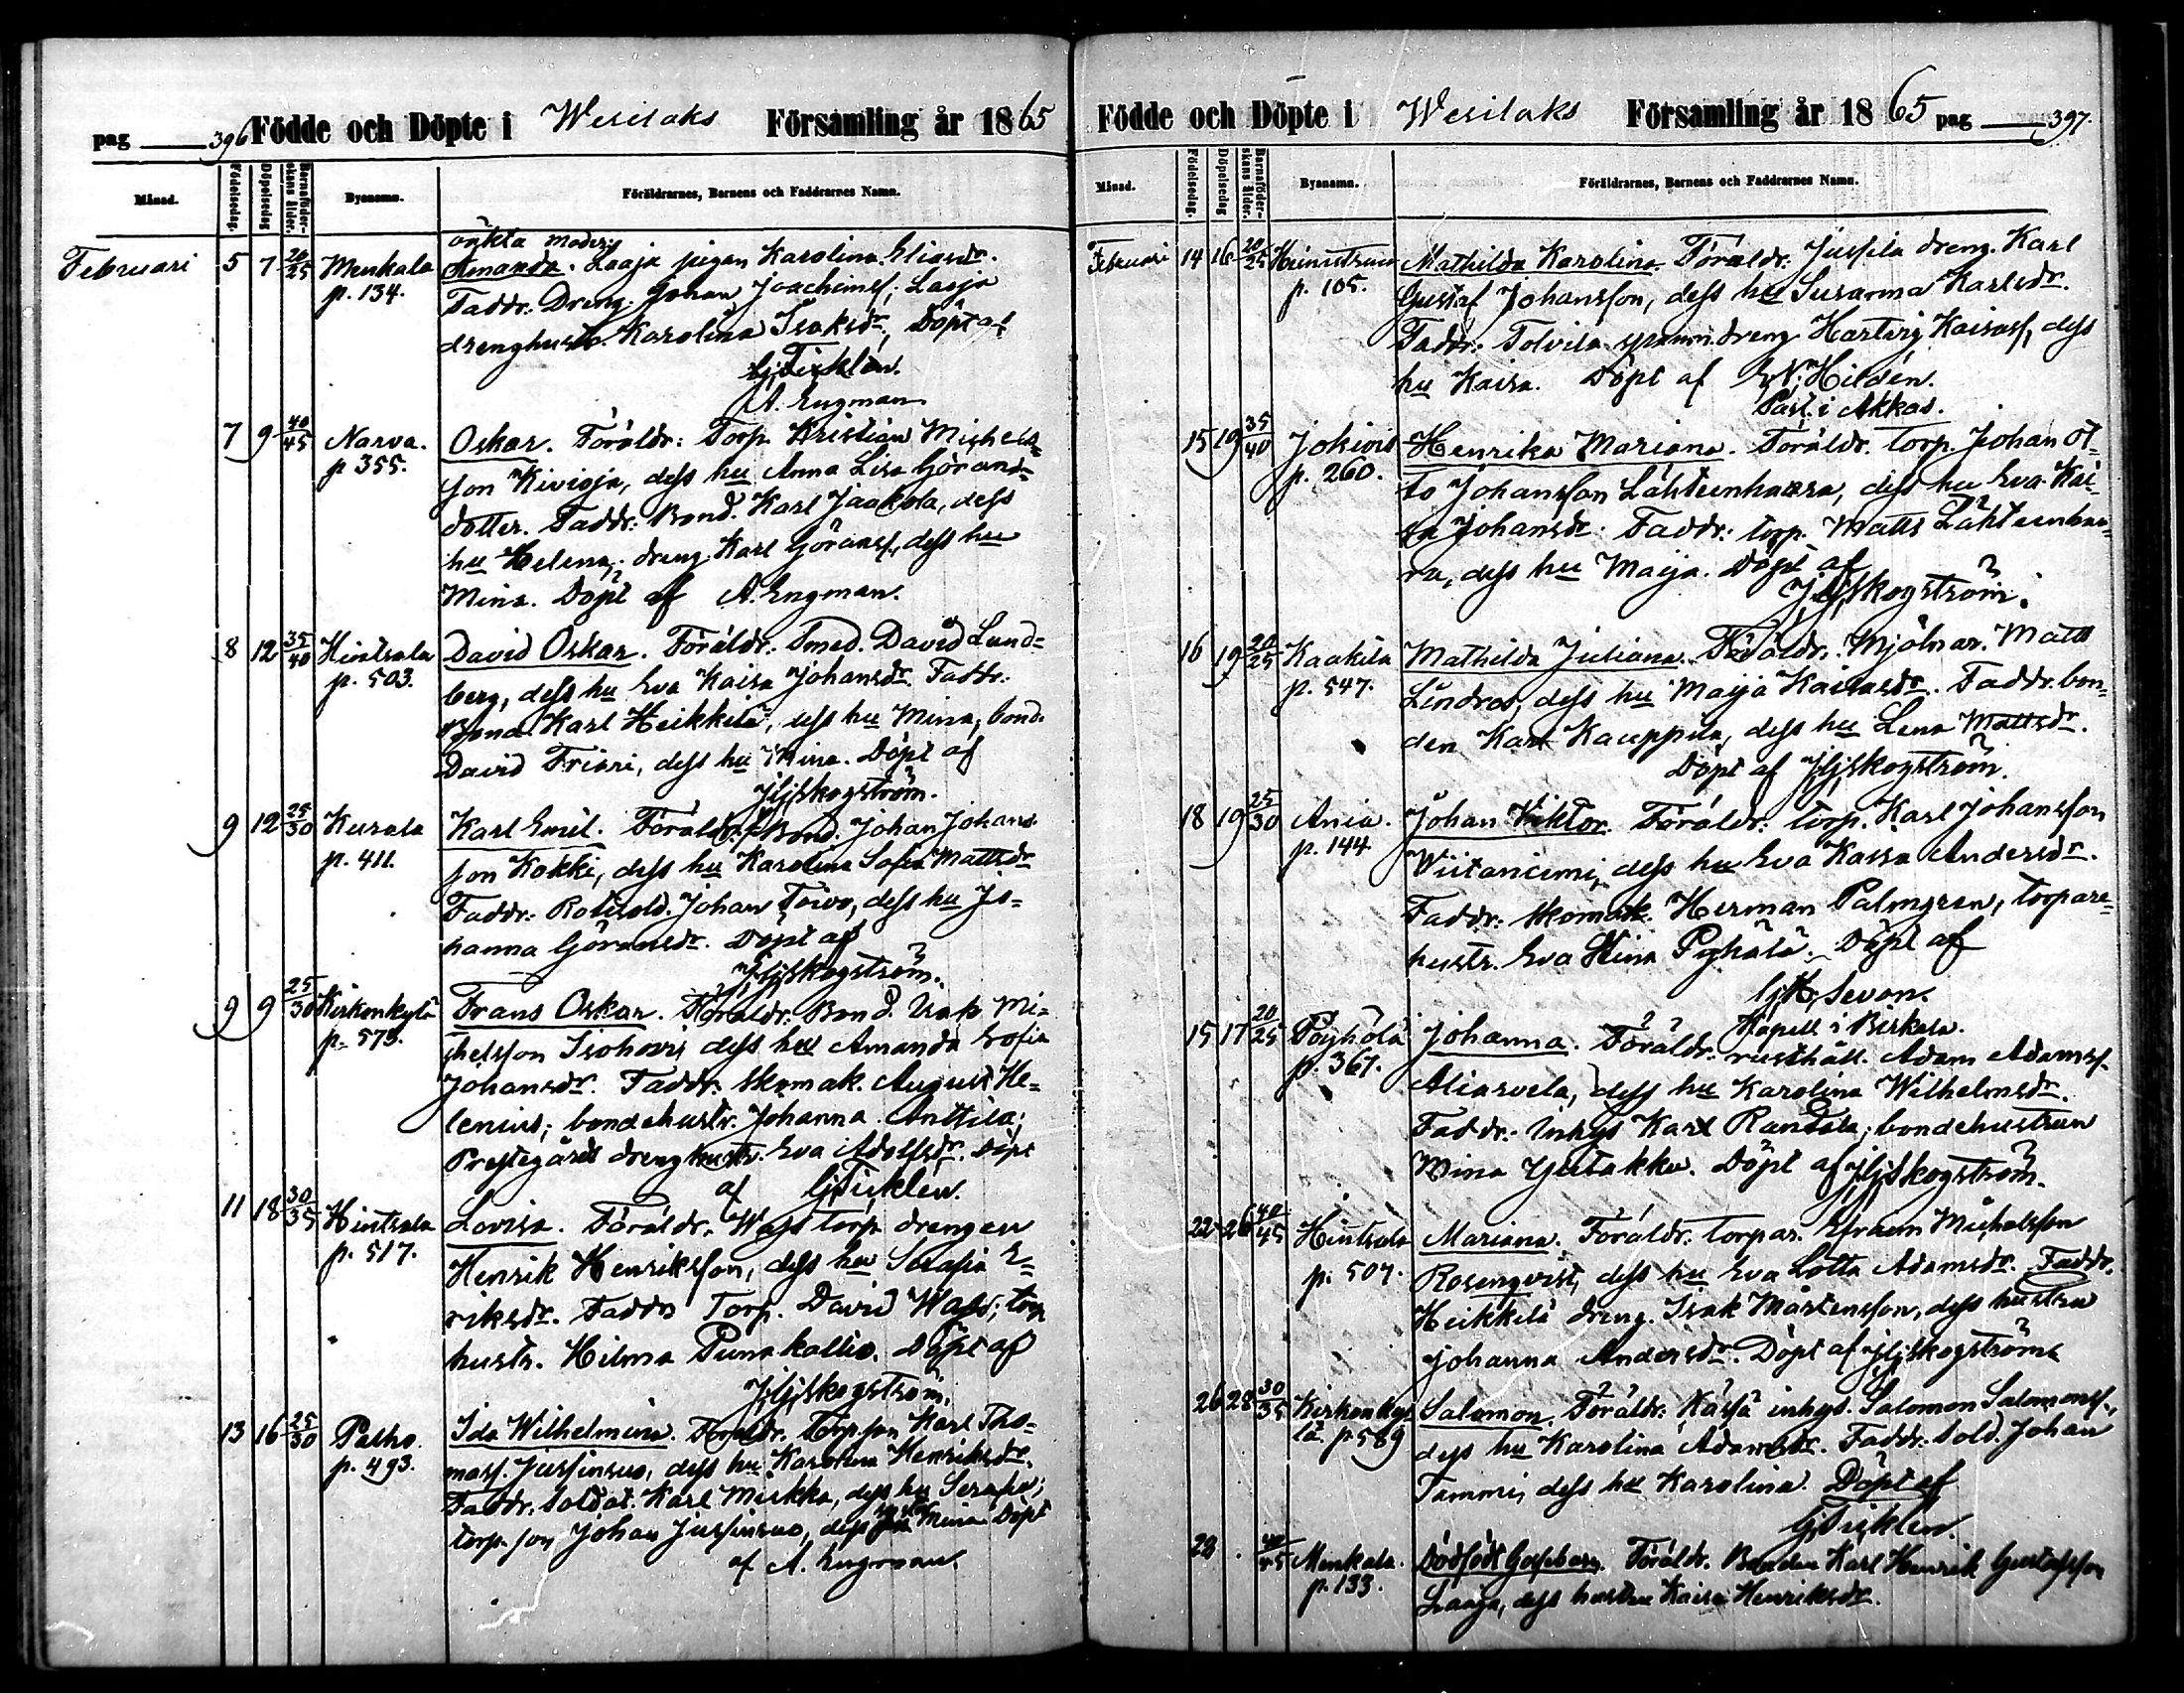 pag 396 Födde och Döpte i Wesilaks Församling år 1865
Månad. Födelsedag. Döpelsedag Barnaföderskans ålder. Byanamn. Föräldrarnes, Barnens och Faddrarnes Namn.
oäkta moder:
Februari 5 7 20/25 Menkala Amanda. Laaja pigan Karolina Eliasdr.
p. 134. Faddr. Dreng. Johan Joachimsf, Laaja
drenghustr. Karolina Isaksdr, Döpt af
Gj. Ticklén.
A. Engman
7 9 40/45 Narva. Oskar. Föräldr: Torp. Kristian Michels=
p 355. son Kivioja, dess hu Anna Lisa Görans=
dotter. Faddr: Bond. Karl Jaakola, dess
hu Helena, dreng Karl Göransf, dess hu
Mina. Döpt af A. Engman.
8 12 35/40 Hintsala David Oskar. Föräldr. Smed. David Lund=
p. 503. berg, dess hu Eva Kaisa Johansdr. Faddr.
Bond. Karl Heikkilä, dess hu Mina, bond.
David Friari, dess hu Mina. Döpt af
Skogström.
9 12 25/30 Kurala Karl Emil. Föräldr. Bond. Johan Johans
p. 411. son Kokki, dess hu Karolina Sofia Mattsdr
Faddr. Johan Toivo, dess hu Jo=
hanna Göransdr. Döpt af
Skogström.
9 9 25/30 Kirkonkylä Frans Oskar. Föräldr. Bond. Isak Mi=
p. 573. chelsson Isohovi dess hu Amanda Sofia
Johansdr. Faddr. Skomak. August He=
lenius; bondehustr. Johanna Anttila;
Prestegårds drenghustr. Eva Adolfsdr. Döpt
af Gj. Ticklén.
11 18 30/35 Hintsala Lovisa. Föräldr. Wass torp drengen
p. 517. Henrik Henriksson, dess hu Serafia E=
riksdr. Faddr Torp. David Wass; torp
hustr. Hilma Punakallio. Döpt af
Skogström.
13 16 25/30 Palho. Ida Wilhelmina. Föräldr. Torp. son Karl Tho=
p. 493. masf. Jussinsuo, dess hu Karolina Henriksdr.
Faddr. Soldat. Karl Mickka, dess hu Serafia;
torp. son Johan Jussinsuo, dess hu Mina Döpt
af A. Engman
Födde och Döpte i Wesilaks Församling år 1865 pag 397.
Månad. Födelsedag. Döpelsedag Barnaföderskans ålder. Byanamn. Föräldrarnes, Barnens och Faddrarnes Namn.
Februari 14 16 20/25 Mathilda Karolina. Föräldr: Jussila dreng. Karl
p. 105. Gustaf Johansson, dess hu Susanna Karlsdr.
Faddr. Tolvila dreng Hartvig Kaisasf, dess
hu Kaisa. Döpt af Hildén.
Past. i Akkas.
15 19 35/40 Jokiois Henrika Mariana. Föräldr. torp. Johan Ot=
p. 260. to Johansson Lähteenhaara, dess hu Eva Kai=
sa Johansdr. Faddr: torp. Matts Lähteenhaa=
ra, dess hu Maija. Döpt af
Skogström.
16 19 20/25 Kaakila Mathilda Juliana. Föräldr. Mjölnar. Matts
p. 547. Lindroos, dess hu Maija Kaisasdr. Faddr. bon=
den Karl Kauppila, dess hu Lena Mattsdr.
Döpt af Skogström.
18 19 25/30 Ania. Johan Viktor. Föräldr: torp. Karl Johansson
p. 144 Viitaniemi, dess hu Eva Kaisa Andersdr.
Faddr: Skomak. Herman Palmgren, torpare=
hustr. Eva Stina Pyhälä. Döpt af
G. H. Sevon.
Kapell. i Birkala.
15 17 20/25 Pöyhölä Johanna. Föräldr. rusthåll. Adam Adamsf.
p. 367. Aliasvela, dess hu Karolina Wilhelmsdr.
Faddr. Inhys Karl Randala; bondehustrun
Mina Yhtakko. Döpt af Skogström.
22 26 40/45 Hintsala Mariana. Föräldr. torpar. Efraim Michelsson
p. 507. Rosenqvist, dess hu Eva Lotta Adamsdr. Faddr.
Heikkilä dreng. Isak Mårtensson, dess hustru
Johanna Andersdr. Döpt af Skogström
26 28 30/35 Kirkonky= Salomon. Föräldr: Kässä inhys. Salomon Salomonsf.,
lä. p. 589 dess hu Karolina Adamsdr. Faddr. Sold. Johan
Tammi, dess hu Karolina. Döpt af
Gj. Ticklén.
28 . 40/45 Menkala. Dödfödt Gossebarn. Föräldr. Bonden Karl Henrik Gustafsson
p. 133. Laaja, dess hustru Kaisa Henriksdr.